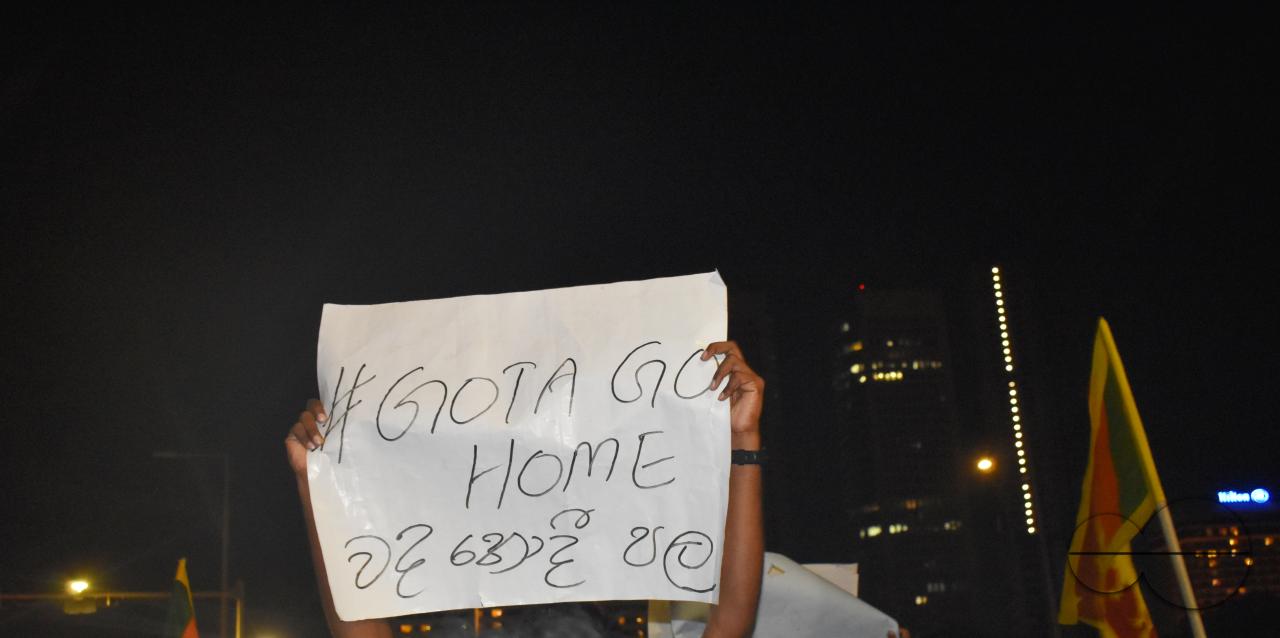 #GOTA GO
HOME
වද නොදී පල
Hilton